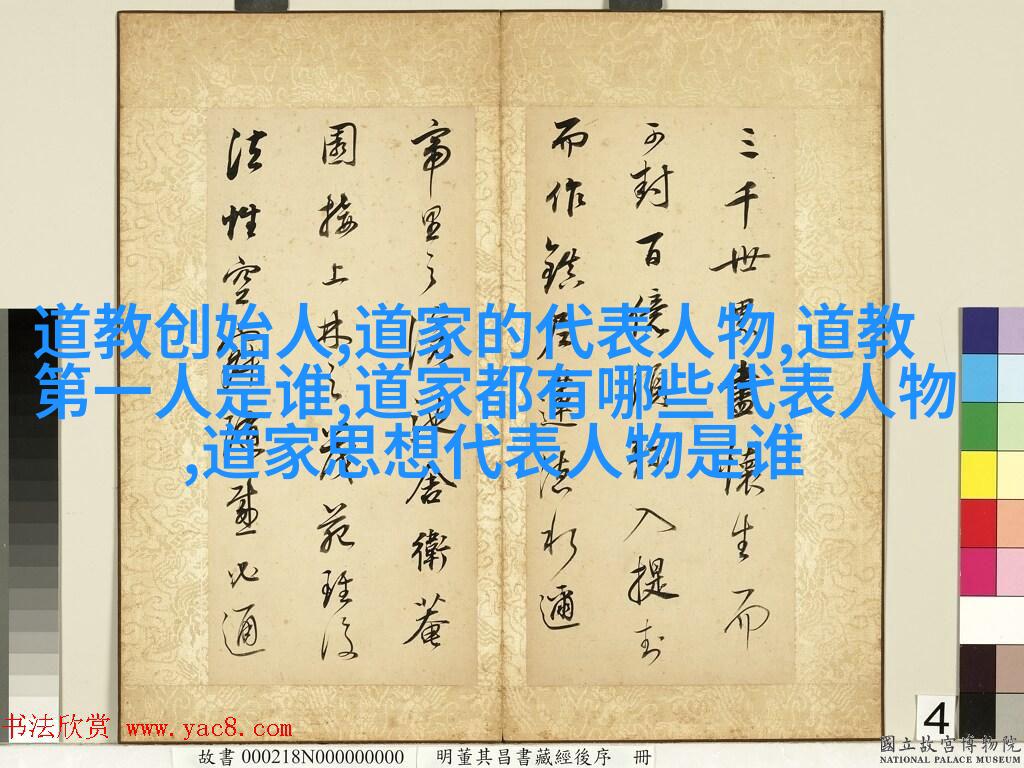 三千世界盡懷生而
可封百億須彌入提封
而作鎮居蓮法於邇
帝里之
園接上林之
法性空
舍衛菴
苑種後
通
道教创始人,道家的代表人物,道教
第一人是谁,道家都有哪些代表人物
,道家思想代表人物是谁
书法欣赏 www.yac8.com
故書 000218N000000000 明董其昌書藏經後序 冊
4
國立故宮博物院
NATIONAL PALACE MUSEUM